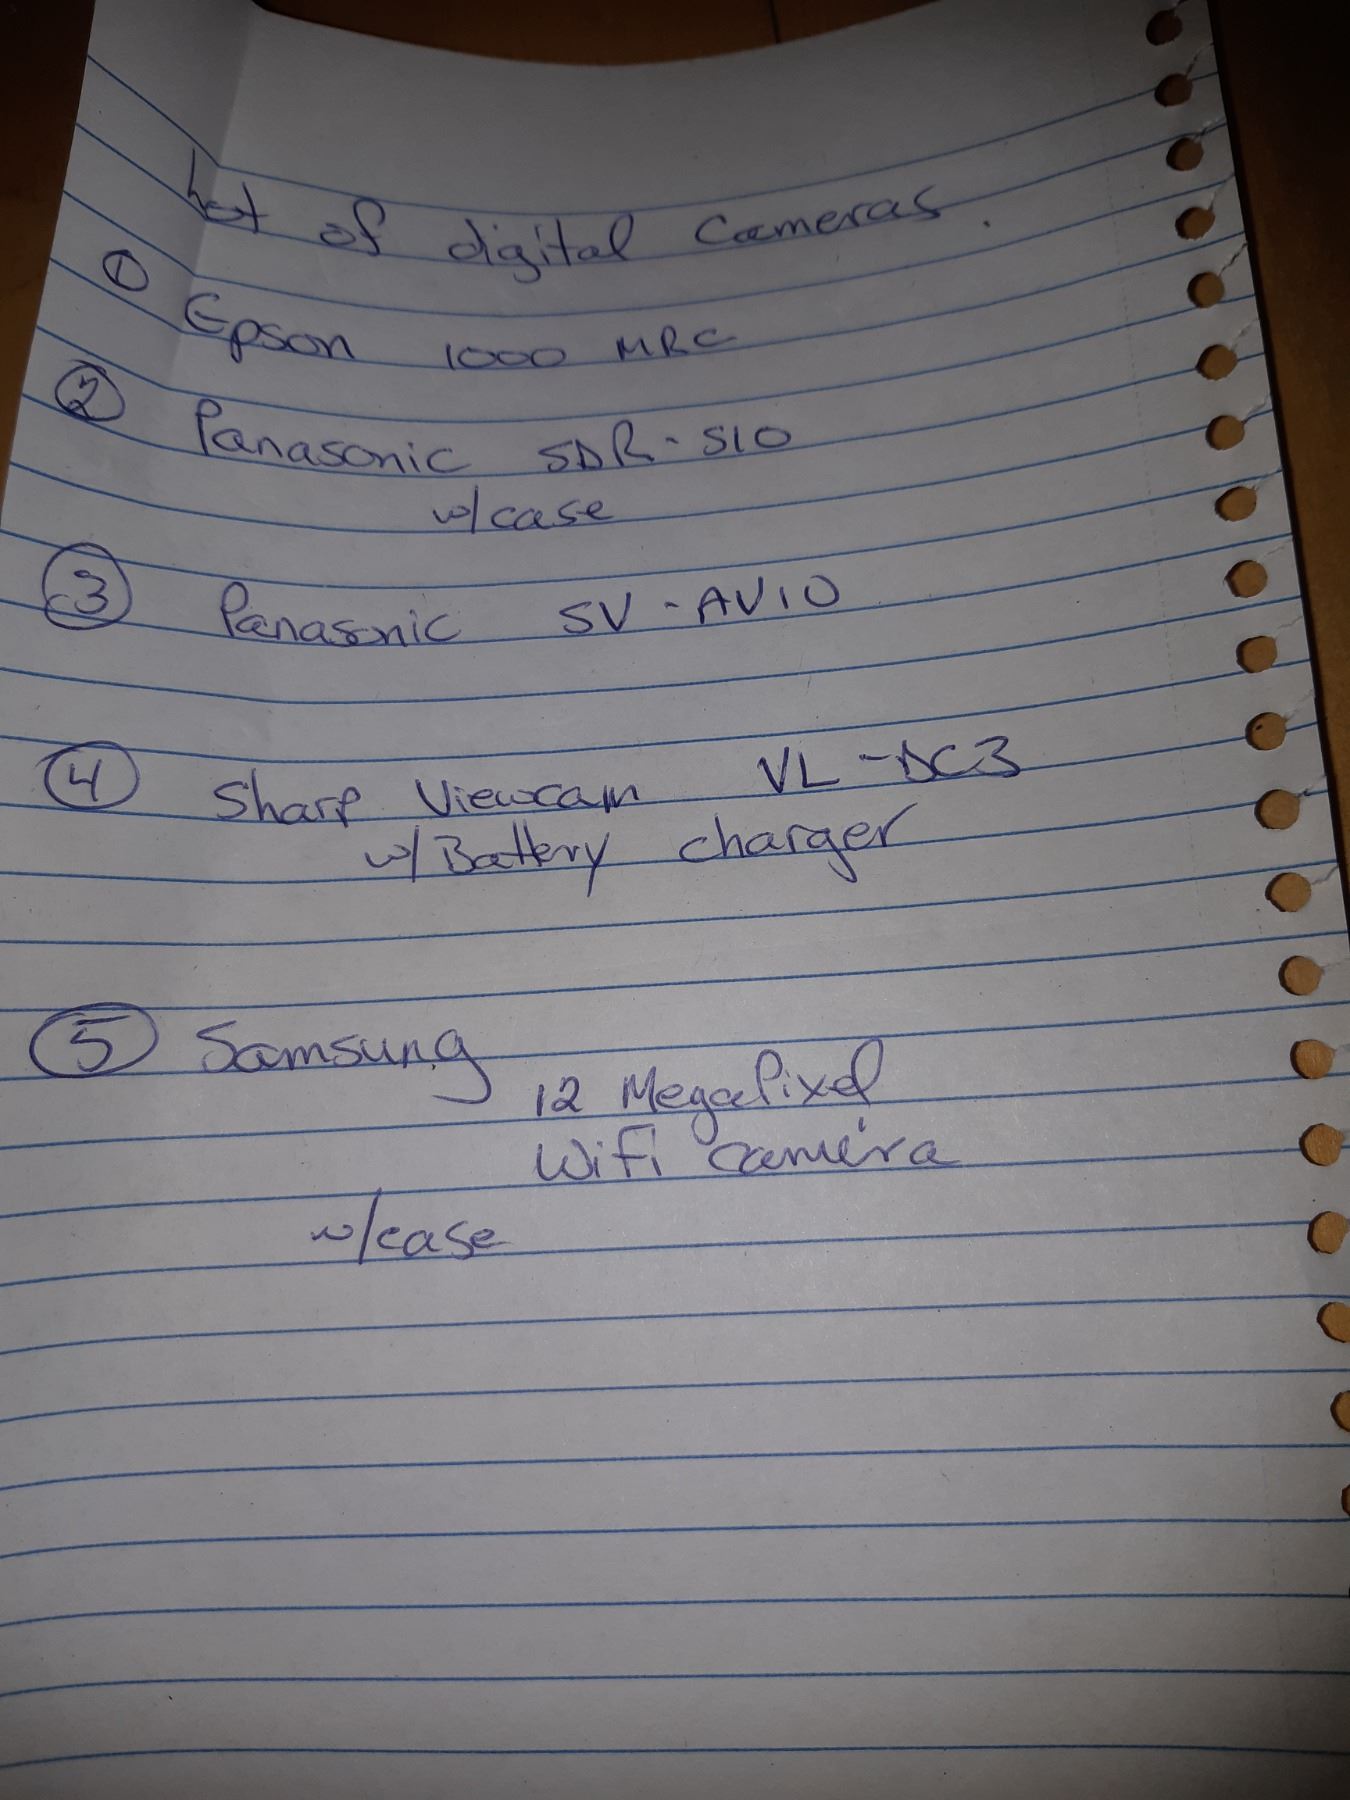 Lot of digital Cameras.
① Epson 1000 MRC
② Panasonic SDR-S10
w/case
③ Panasonic SV-AV10
④ Sharp Viewcam VL-DC3
w/Battery charger
⑤ Samsung
12 MegaPixel
WiFi camera
w/case